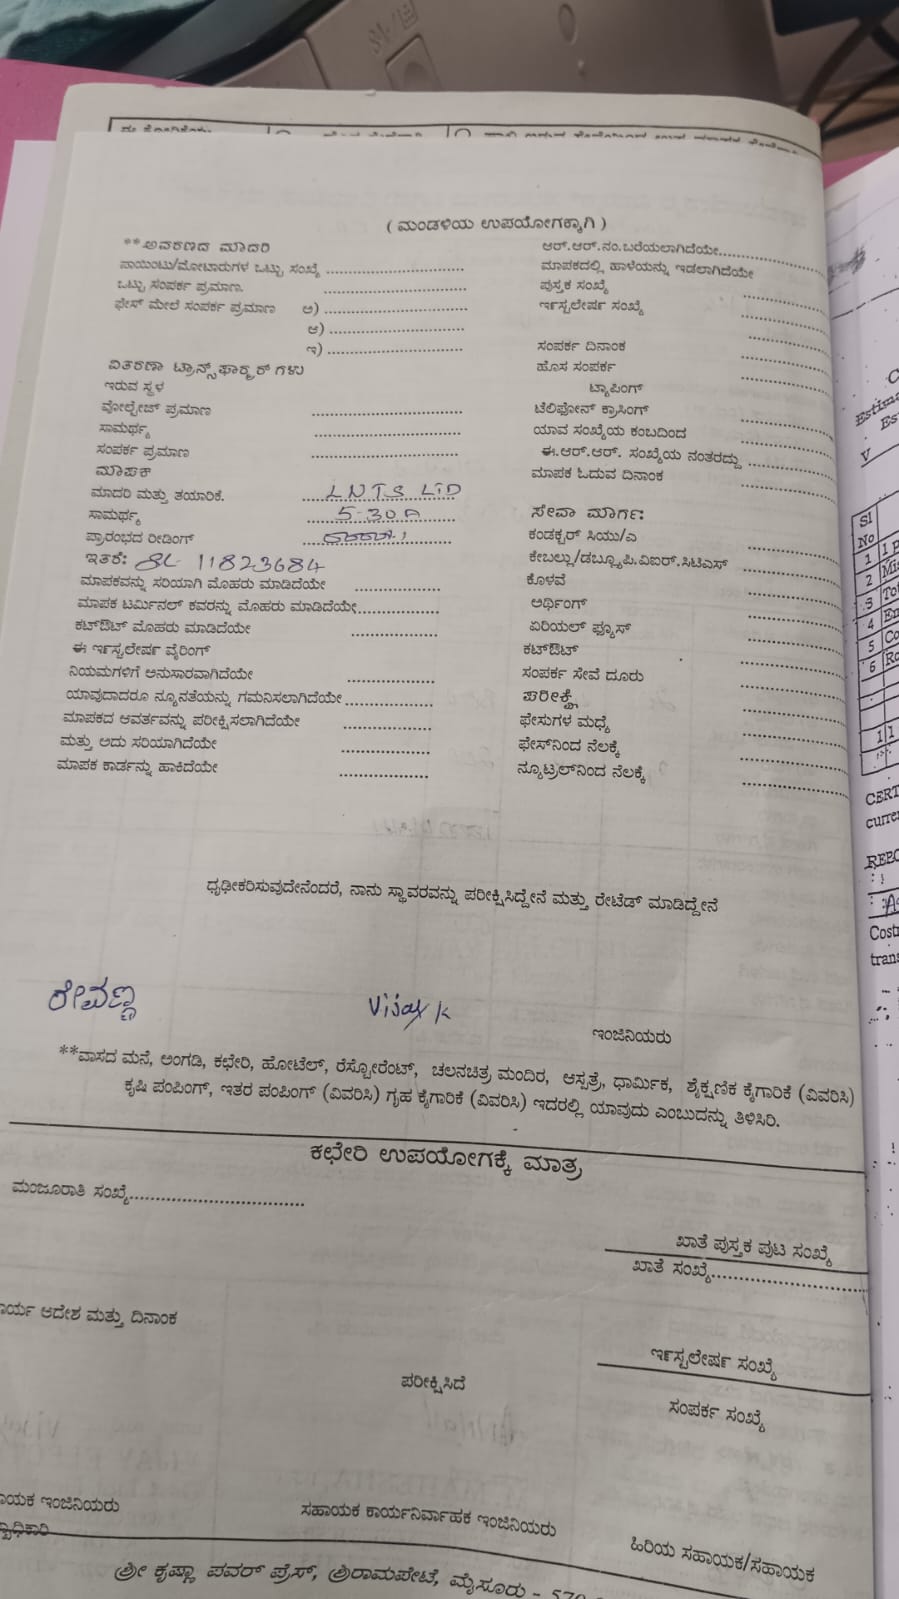 ( ಮಂಡಳಿಯ ಉಪಯೋಗಕ್ಕಾಗಿ )
**ಆವರಣದ ಮಾದರಿ
ಪಾಯಿಂಟು/ಮೋಟಾರುಗಳ ಒಟ್ಟು ಸಂಖ್ಯೆ ..............................
ಒಟ್ಟು ಸಂಪರ್ಕ ಪ್ರಮಾಣ. ..............................
ಫೇಸ್ ಮೇಲೆ ಸಂಪರ್ಕ ಪ್ರಮಾಣ ಅ) ..............................
ಆ) ..............................
ಇ) ..............................
ವಿತರಣಾ ಟ್ರಾನ್ಸ್‌ಫಾರ್ಮರ್ ಗಳು
ಇರುವ ಸ್ಥಳ
ವೋಲ್ಟೇಜ್ ಪ್ರಮಾಣ ..............................
ಸಾಮರ್ಥ್ಯ ..............................
ಸಂಪರ್ಕ ಪ್ರಮಾಣ ..............................
ಮಾಪಕ
ಮಾದರಿ ಮತ್ತು ತಯಾರಿಕೆ. LNTS LTD
ಸಾಮರ್ಥ್ಯ 5-30A
ಪ್ರಾರಂಭದ ರೀಡಿಂಗ್
ಇತರೆ: SL 11823684
ಮಾಪಕವನ್ನು ಸರಿಯಾಗಿ ಮೊಹರು ಮಾಡಿದೆಯೇ ....................
ಮಾಪಕ ಟರ್ಮಿನಲ್ ಕವರನ್ನು ಮೊಹರು ಮಾಡಿದೆಯೇ....................
ಕಟ್‌ಔಟ್ ಮೊಹರು ಮಾಡಿದೆಯೇ ....................
ಈ ಇನ್‌ಸ್ಟಲೇಷನ್ ವೈರಿಂಗ್
ನಿಯಮಗಳಿಗೆ ಅನುಸಾರವಾಗಿದೆಯೇ ....................
ಯಾವುದಾದರೂ ನ್ಯೂನತೆಯನ್ನು ಗಮನಿಸಲಾಗಿದೆಯೇ....................
ಮಾಪಕದ ಆವರ್ತವನ್ನು ಪರೀಕ್ಷಿಸಲಾಗಿದೆಯೇ ....................
ಮತ್ತು ಅದು ಸರಿಯಾಗಿದೆಯೇ ....................
ಮಾಪಕ ಕಾರ್ಡನ್ನು ಹಾಕಿದೆಯೇ ....................
ಆರ್.ಆರ್.ನಂ.ಬರೆಯಲಾಗಿದೆಯೇ....................
ಮಾಪಕದಲ್ಲಿ ಹಾಳೆಯನ್ನು ಇಡಲಾಗಿದೆಯೇ
ಪುಸ್ತಕ ಸಂಖ್ಯೆ ....................
ಇನ್‌ಸ್ಟಲೇಷನ್ ಸಂಖ್ಯೆ ....................
ಸಂಪರ್ಕ ದಿನಾಂಕ ....................
ಹೊಸ ಸಂಪರ್ಕ ....................
ಟ್ಯಾಪಿಂಗ್ ....................
ಟೆಲಿಫೋನ್ ಕ್ರಾಸಿಂಗ್ ....................
ಯಾವ ಸಂಖ್ಯೆಯ ಕಂಬದಿಂದ ....................
ಈ.ಆರ್.ಆರ್. ಸಂಖ್ಯೆಯ ನಂತರದ್ದು ....................
ಮಾಪಕ ಓದುವ ದಿನಾಂಕ ....................
ಸೇವಾ ಮಾರ್ಗ:
ಕಂಡಕ್ಟರ್ ಸಿಯು/ಎ ....................
ಕೇಬಲ್ಲು/ಡಬ್ಲ್ಯೂಪಿ.ವಿಐಆರ್.ಸಿಟಿಎಸ್ ....................
ಕೊಳವೆ ....................
ಅರ್ಥಿಂಗ್ ....................
ಏರಿಯಲ್ ಫ್ಯೂಸ್ ....................
ಕಟ್‌ಔಟ್ ....................
ಸಂಪರ್ಕ ಸೇವೆ ದೂರು ....................
ಪರೀಕ್ಷೆ
ಫೇಸುಗಳ ಮಧ್ಯೆ ....................
ಫೇಸ್‌ನಿಂದ ನೆಲಕ್ಕೆ ....................
ನ್ಯೂಟ್ರಲ್‌ನಿಂದ ನೆಲಕ್ಕೆ ....................
ಧೃಢೀಕರಿಸುವುದೇನೆಂದರೆ, ನಾನು ಸ್ಥಾವರವನ್ನು ಪರೀಕ್ಷಿಸಿದ್ದೇನೆ ಮತ್ತು ರೇಟೆಡ್ ಮಾಡಿದ್ದೇನೆ
ರೇವಣ್ಣ Vijay K
ಇಂಜಿನಿಯರು
**ವಾಸದ ಮನೆ, ಅಂಗಡಿ, ಕಛೇರಿ, ಹೋಟೆಲ್, ರೆಸ್ಟೋರೆಂಟ್, ಚಲನಚಿತ್ರ ಮಂದಿರ, ಆಸ್ಪತ್ರೆ, ಧಾರ್ಮಿಕ, ಶೈಕ್ಷಣಿಕ ಕೈಗಾರಿಕೆ (ವಿವರಿಸಿ)
ಕೃಷಿ ಪಂಪಿಂಗ್, ಇತರ ಪಂಪಿಂಗ್ (ವಿವರಿಸಿ) ಗೃಹ ಕೈಗಾರಿಕೆ (ವಿವರಿಸಿ) ಇದರಲ್ಲಿ ಯಾವುದು ಎಂಬುದನ್ನು ತಿಳಿಸಿರಿ.
ಕಛೇರಿ ಉಪಯೋಗಕ್ಕೆ ಮಾತ್ರ
ಮಂಜೂರಾತಿ ಸಂಖ್ಯೆ..............................
ಖಾತೆ ಪುಸ್ತಕ ಪುಟ ಸಂಖ್ಯೆ
ಖಾತೆ ಸಂಖ್ಯೆ..............................
ಾರ್ಯ ಆದೇಶ ಮತ್ತು ದಿನಾಂಕ
ಇನ್‌ಸ್ಟಲೇಷನ್ ಸಂಖ್ಯೆ
ಪರೀಕ್ಷಿಸಿದೆ
ಸಂಪರ್ಕ ಸಂಖ್ಯೆ
ಾಯಕ ಇಂಜಿನಿಯರು
ಸಹಾಯಕ ಕಾರ್ಯನಿರ್ವಾಹಕ ಇಂಜಿನಿಯರು
ಹಿರಿಯ ಸಹಾಯಕ/ಸಹಾಯಕ
ಶ್ರೀ ಕೃಷ್ಣಾ ಪವರ್ ಪ್ರೆಸ್, ಶ್ರೀರಾಮಪೇಟೆ, ಮೈಸೂರು - 570
Estima
V
Sl
No
1
2 Mis
3 Tot
4
5 Co
6
CERT
curre
REPO
Cost
trans